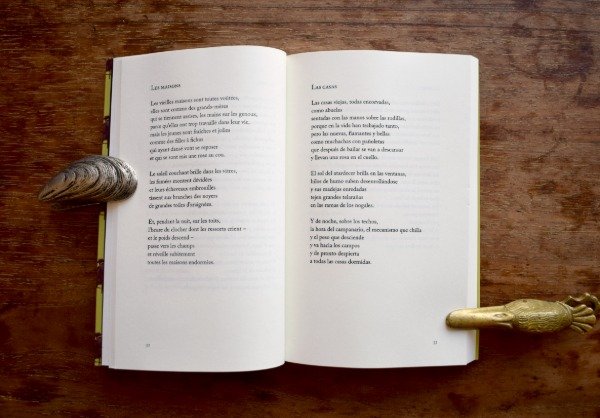 Les maisons
Les vieilles maisons sont toutes voûtées,
elles sont comme des grands-mères
qui se tiennent assises, les mains sur les genoux,
parce qu'elles ont trop travaillé dans leur vie,
mais les jeunes sont fraîches et jolies
comme des filles à fichus
qui ayant dansé vont se reposer
et qui se sont mis une rose au cou.
Le soleil couchant brille dans les vitres,
les fumées montent dévidées
et leurs écheveaux embrouillés
tissent aux branches des noyers
de grandes toiles d'araignées.
Et, pendant la nuit, sur les toits,
l'heure du clocher dont les ressorts crient –
et le poids descend –
passe vers les champs
et réveille subitement
toutes les maisons endormies.
Las casas
Las casas viejas, todas encorvadas,
como abuelas
sentadas con las manos sobre las rodillas,
porque en la vida han trabajado tanto,
pero las nuevas, flamantes y bellas
como muchachas con pañoletas
que después de bailar se van a descansar
y llevan una rosa en el cuello.
El sol del atardecer brilla en las ventanas,
hilos de humo ruben desenrollándose
y sus madejas enredadas
tejen grandes telarañas
en las ramas de los nogales.
Y de noche, sobre los techos,
la hora del campanario, el mecanismo que chilla
y el peso que desciende
y va hacia los campos
y de pronto despierta
a todas las casas dormidas.
33